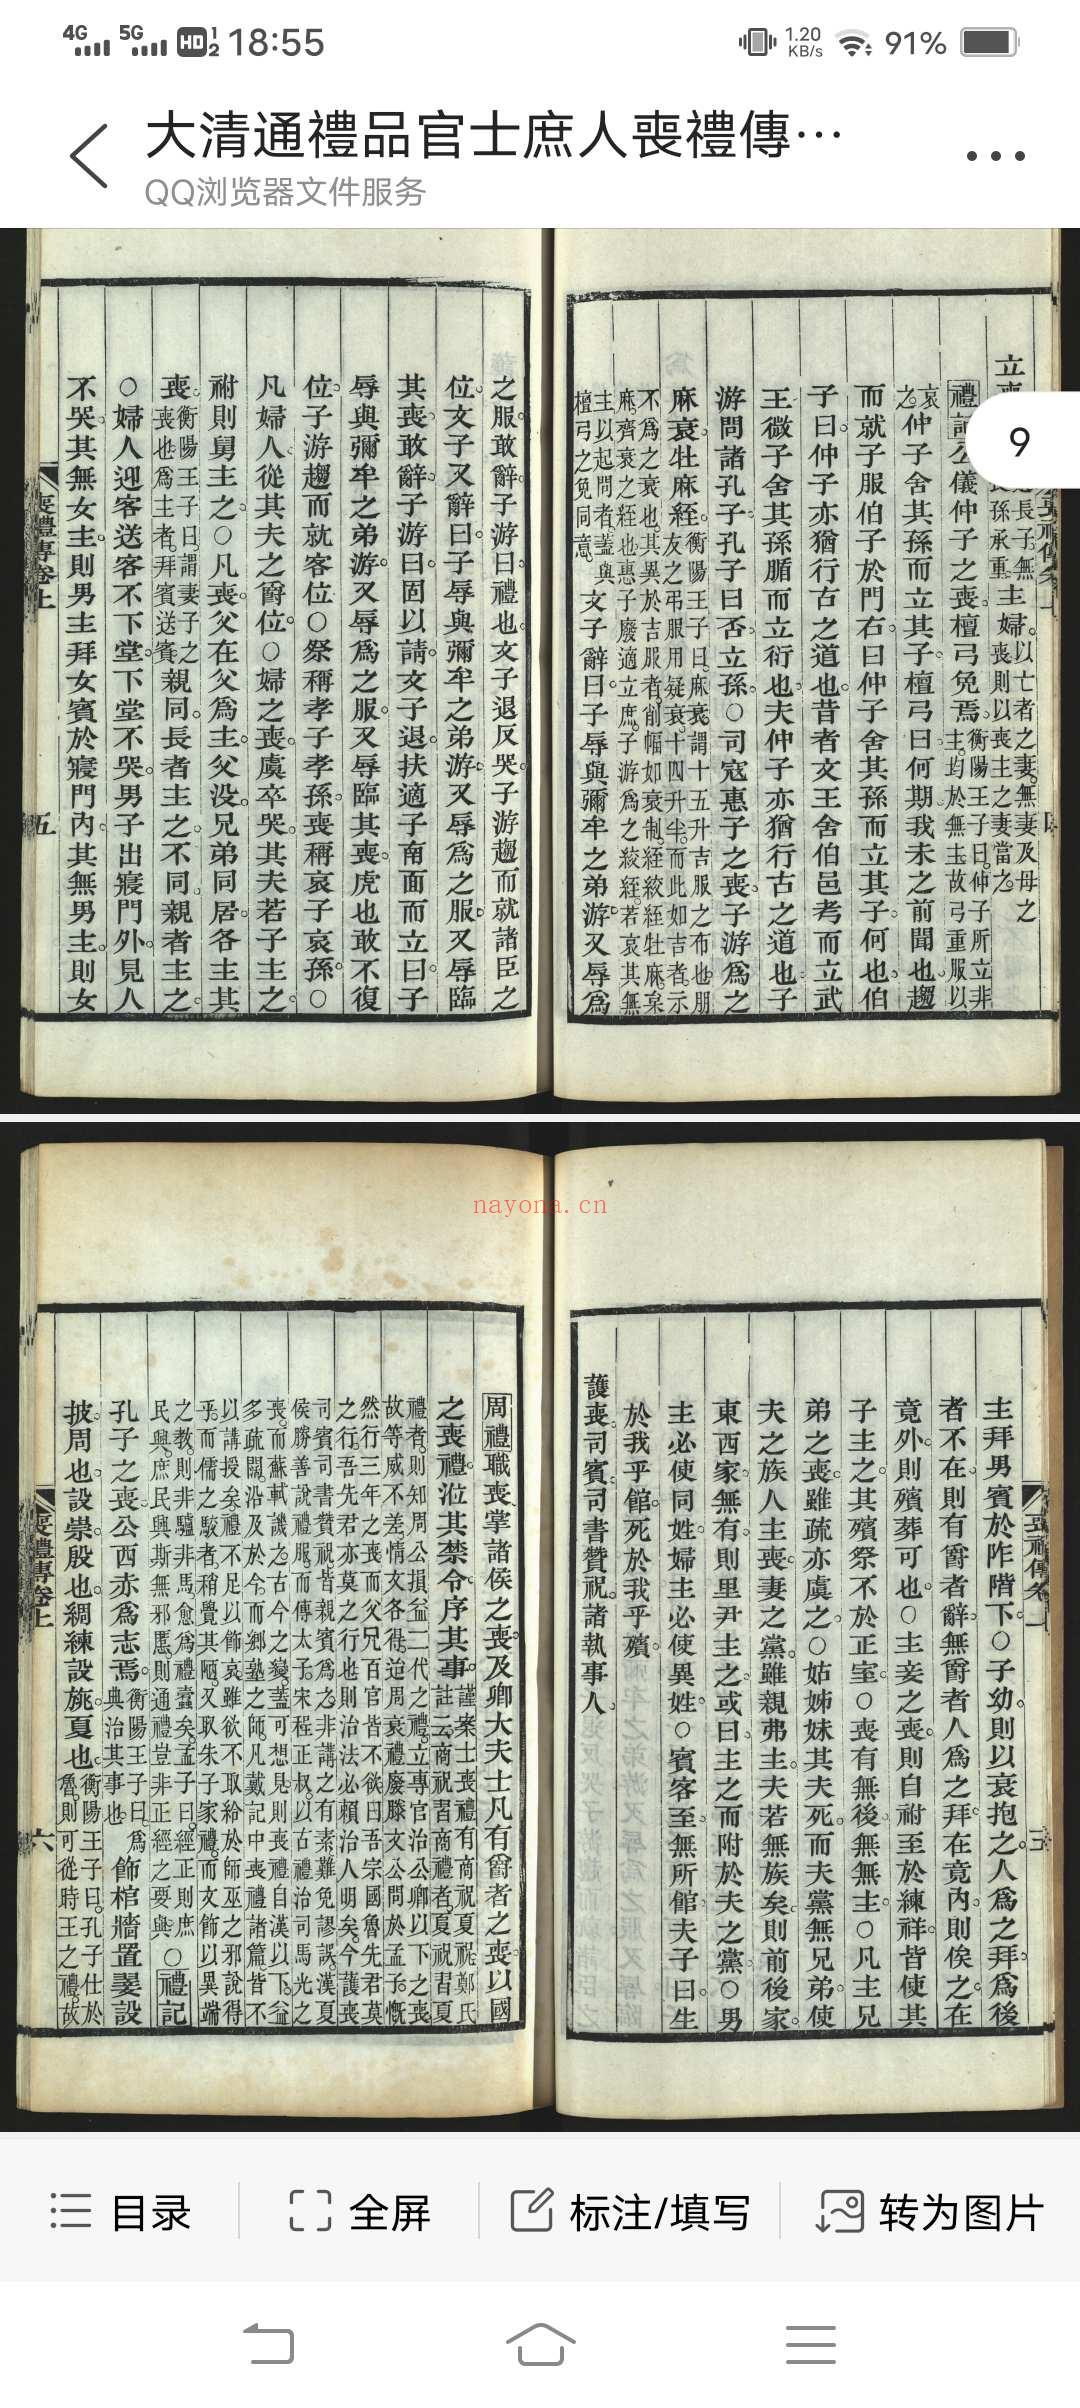 4G 5G HD 1 2 18:55 1.20 KB/s 91%
大清通禮品官士庶人喪禮傳…
QQ浏览器文件服务
9
禮記公儀仲子之喪檀弓免焉
仲子舍其孫而立其子檀弓曰何期我未之前聞也趨
而就子服伯子於門右曰仲子舍其孫而立其子何也伯
子曰仲子亦猶行古之道也昔者文王舍伯邑考而立武
王微子舍其孫腯而立衍也夫仲子亦猶行古之道也子
游問諸孔子孔子曰否立孫○司寇惠子之喪子游爲之
麻衰牡麻絰
文子辭曰子辱與彌牟之弟游又辱爲
之服敢辭子游曰禮也文子退反哭子游趨而就諸臣之
位文子又辭曰子辱與彌牟之弟游又辱爲之服又辱臨
其喪敢辭子游曰固以請文子退扶適子南面而立曰子
辱與彌牟之弟游又辱爲之服又辱臨其喪虎也敢不復
位子游趨而就客位○祭稱孝子孝孫喪稱哀子哀孫○
凡婦人從其夫之爵位○婦之喪虞卒哭其夫若子主之
祔則舅主之○凡喪父在父爲主父没兄弟同居各主其
喪衡陽王子曰謂妻子之喪也爲主者拜賓送賓親同長者主之不同親者主之
○婦人迎客送客不下堂下堂不哭男子出寢門外見人
不哭其無女主則男主拜女賓於寢門內其無男主則女
喪禮傳卷上
五
nayona.cn
主拜男賓於阼階下○子幼則以衰抱之人爲之拜爲後
者不在則有爵者辭無爵者人爲之拜在竟內則俟之在
竟外則殯葬可也○主妾之喪則自祔至於練祥皆使其
子主之其殯祭不於正室○喪有無後無無主○凡主兄
弟之喪雖疏亦虞之○姑姊妹其夫死而夫黨無兄弟使
夫之族人主喪妻之黨雖親弗主夫若無族矣則前後家
東西家無有則里尹主之或曰主之而附於夫之黨○男
主必使同姓婦主必使異姓○賓客至無所館夫子曰生
於我乎館死於我乎殯
護喪司賓司書贊祝諸執事人
周禮職喪掌諸侯之喪及卿大夫士凡有爵者之喪以國
之喪禮涖其禁令序其事謹案士喪禮有商祝夏祝鄭氏註云商祝習商禮者夏祝習夏
禮者則知周公損益二代之禮立專官治公卿以下之喪
故等威不差情文各得迨周衰禮廢滕文公問於孟子慨
然行三年之喪而父兄百官皆不欲曰吾宗國魯先君莫
之行吾先君亦莫之行也則治法必賴治人明矣今護喪
司賓司書贊祝皆親賓爲之非講之有素難免謬誤漢夏
侯勝善說禮服而傳太子宋程正叔以古禮治司馬光之
喪而蘇軾譏之古今之變蓋可想見則喪禮自漢以下益
多疏闊沿及於今而鄉塾之師凡戴記中喪禮諸篇皆不
以講授矣禮不足以飾哀雖欲不取給於師巫之邪說得
乎而儒之駿者稍覺其陋又取朱子家禮而文飾以異端
之教則非驢非馬愈爲禮蠹矣孟子曰經正則庶
民興庶民興斯無邪慝則通禮豈非正經之要與○禮記
孔子之喪公西赤爲志焉衡陽王子曰爲典治其事也飾棺牆置翣設
披周也設崇殷也綢練設旐夏也衡陽王子曰孔子仕於魯則可從時王之禮故
喪禮傳卷上
六
目录
全屏
标注/填写
转为图片